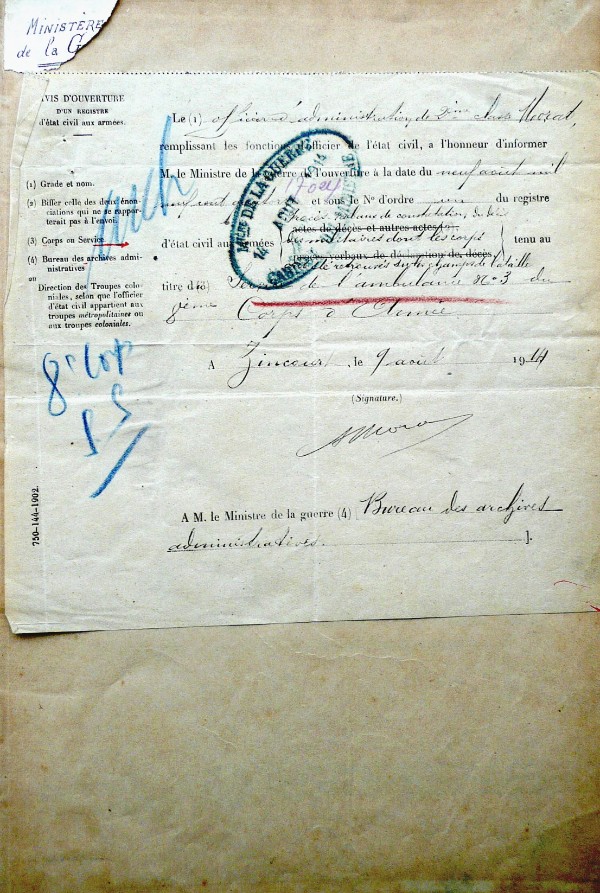 MINISTÈRE
de la G
AVIS D'OUVERTURE
D'UN REGISTRE
d'état civil aux armées.
(1) Grade et nom.
(2) Biffer celle des deux énonciations qui ne se rapporterait pas à l'envoi.
(3) Corps on Service
(4) Bureau des archives administratives
ou
Direction des Troupes coloniales, selon que l'officier d'état civil appartient aux troupes métropolitaines ou aux troupes coloniales.
750-144-1902.
Le (1) officier d'administration de 2ème classe Morat,
remplissant les fonctions d'officier de l'état civil, a l'honneur d'informer
M. le Ministre de la guerre de l'ouverture à la date du neuf août mil
neuf cent quatorze et sous le N° d'ordre un du registre
procès verbaux de constatation, de décès
actes de décès et autres actes
d'état civil aux armées des militaires dont les corps tenu au
procès-verbaux de déclaration de décès
été retrouvés sur les champs de bataille
titre d(3) de l'ambulance N° 3 du
8ème Corps d'Armée
A Zincourt, le 9 août 1914
(Signature.)
AMora
A M. le Ministre de la guerre (4) [Bureau des archives
administratives. ].
MTÈRE DE LA GUERRE
14 AOUT 1914
17024
8e Corps